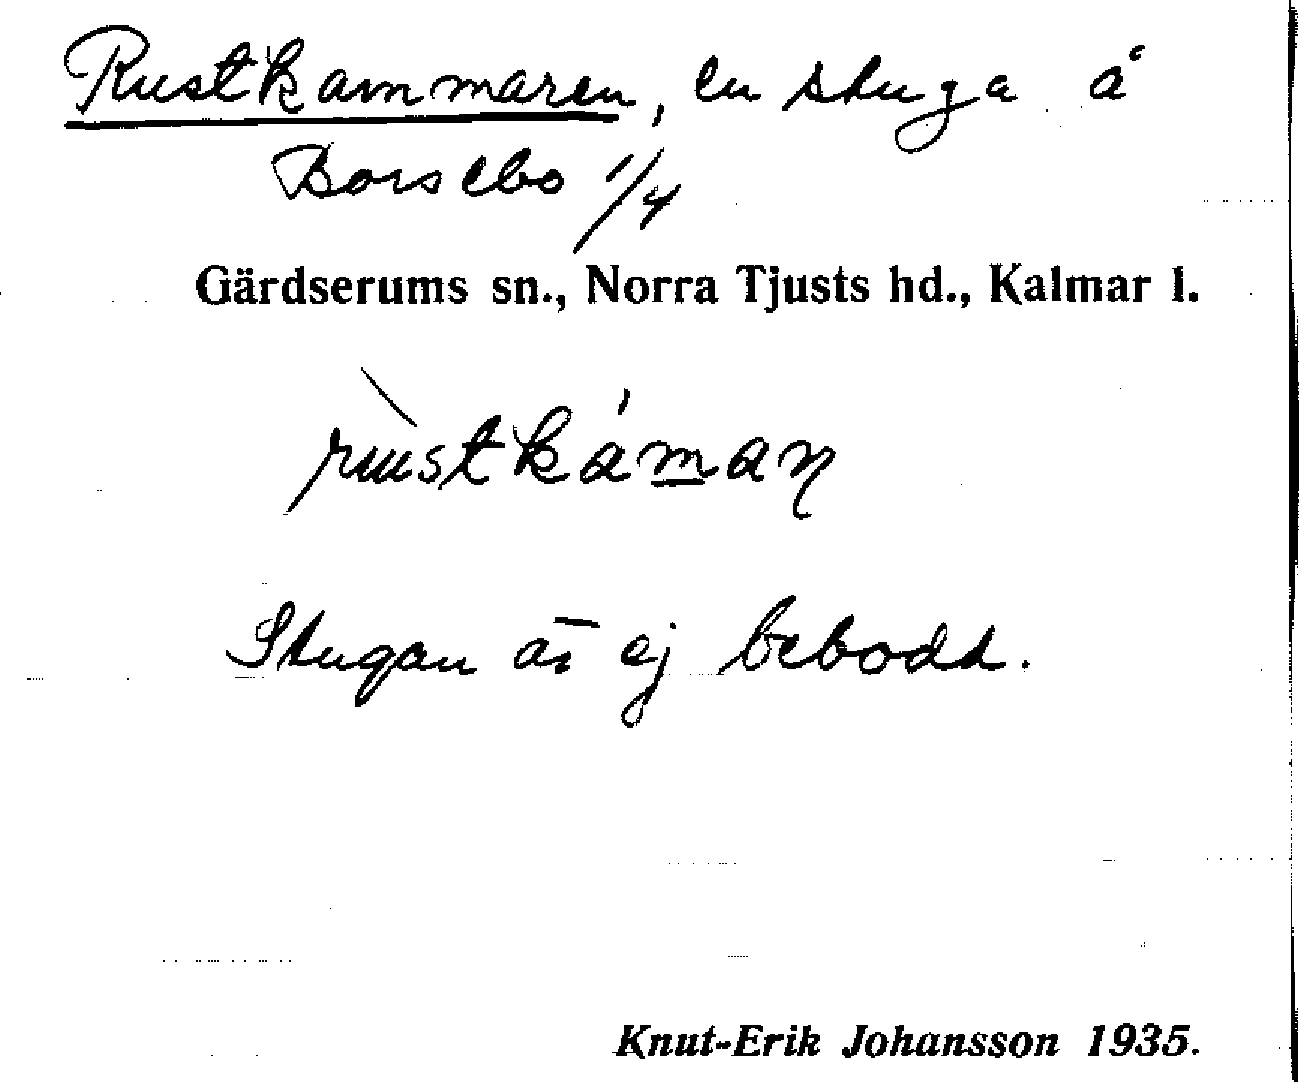 Rustkammaren, en stuga å
Borsebo 1/4
Gärdserums sn., Norra Tjusts hd., Kalmar l.
rùstkáman
Stugan är ej bebodd.
Knut-Erik Johansson 1935.